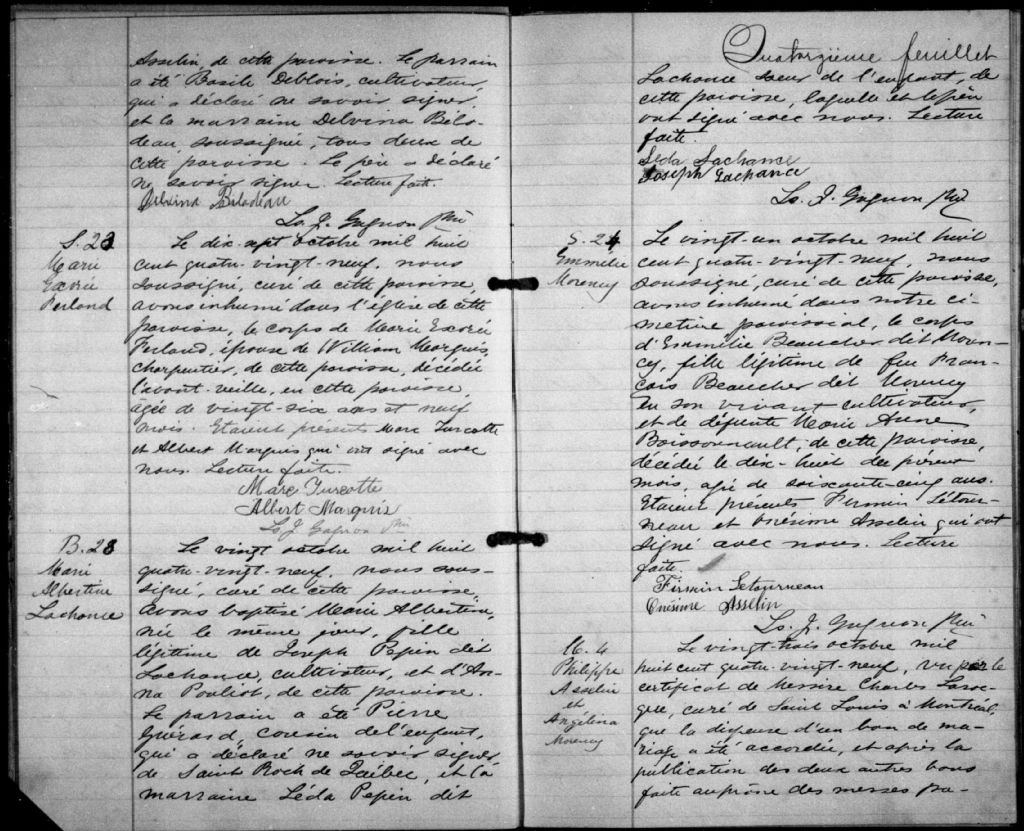 Asselin, de cette paroisse. Le parrain
a été Basile Deblois, cultivateur,
qui a déclaré ne savoir signer,
et la marraine Delvina Bilo-
deau, soussignée, tous deux de
cette paroisse. Le père a déclaré
ne savoir signer. Lecture faite.
Delvina Bilodeau
Ls. J. Gagnon Ptre
S. 23
Marie
Exorée
Ferland
Le dix-sept octobre mil huit
cent quatre-vingt-neuf, nous
soussigné, curé de cette paroisse,
avons inhumé dans l'église de cette
paroisse, le corps de Marie Exorée
Ferland, épouse de William Marquis,
charpentier, de cette paroisse, décédée
l'avant-veille, en cette paroisse,
âgée de vingt-six ans et neuf
mois. Etaient présents Marc Turcotte
et Albert Marquis qui ont signé avec
nous. Lecture faite.
Marc Turcotte
Albert Marquis
Ls J Gagnon Ptre
B. 28
Marie
Albertine
Lachance
Le vingt octobre mil huit
quatre-vingt-neuf, nous sous-
signé, curé de cette paroisse,
avons baptisé Marie Albertine,
née le même jour, fille
légitime de Joseph Pepin dit
Lachance, cultivateur, et d'An-
na Pouliot, de cette paroisse.
Le parrain a été Pierre
Guérard, cousin de l'enfant,
qui a déclaré ne savoir signer
de Saint Roch de Québec, et la
marraine Léda Pepin dit
Quatorzième feuillet
Lachance soeur de l'enfant, de
cette paroisse, laquelle et le père
ont signé avec nous. Lecture
faite.
Léda Lachance
Joseph Lachance
Ls. J. Gagnon Ptre
S. 24
Emmélie
Morency
Le vingt-un octobre mil huit
cent quatre-vingt-neuf, nous
soussigné, curé de cette paroisse,
avons inhumé dans notre ci-
metière paroissial, le corps
d'Emmélie Beaucher dit Moren-
cy, fille légitime de feu Fran-
çois Beaucher dit Morency
en son vivant cultivateur,
et de défunte Marie Anne
Boissonnault, de cette paroisse,
décédée le dix-huit du présent
mois, agée de soixante-cinq ans.
Etaient présents Firmin Létour-
neau et Onésime Asselin qui ont
signé avec nous. Lecture
faite.
Firmin Letourneau
Onésime Asselin
Ls. J. Gagnon Ptre
M. 4
Philippe
Asselin
et
Angélina
Morency
Le vingt-trois octobre mil
huit cent quatre-vingt-neuf, vu par le
certificat de Messire Charles Laroc-
que, curé de Saint Louis à Montréal,
que la dispense d'un ban de ma-
riage a été accordée, et après la
publication des deux autres bans
faite au prône des messes pa-